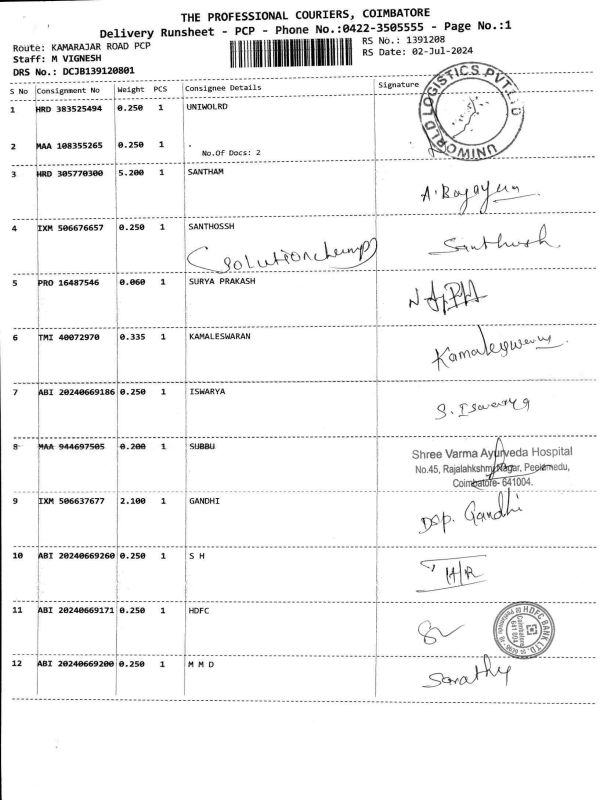 THE PROFESSIONAL COURIERS, COIMBATORE
Delivery Runsheet - PCP - Phone No.:0422-3505555 - Page No.:1
Route: KAMARAJAR ROAD PCP
RS No.: 1391208
Staff: M VIGNESH
RS Date: 02-Jul-2024
DRS No.: DCJB139120801
S No Consignment No Weight PCS Consignee Details Signature
1 HRD 383525494 0.250 1 UNIWOLRD
UNIWORLD LOGISTICS.PVT.LTD
2 MAA 108355265 0.250 1 .
No.Of Docs: 2
3 HRD 305770300 5.200 1 SANTHAM
4 IXM 506676657 0.250 1 SANTHOSSH
Santhosh
5 PRO 16487546 0.060 1 SURYA PRAKASH
6 TMI 40072970 0.335 1 KAMALESWARAN
7 ABI 20240669186 0.250 1 ISWARYA
8 MAA 944697505 0.200 1 SUBBU
Shree Varma Ayurveda Hospital
No.45, Rajalahkshmi Nagar, Peelamedu,
Coimbatore- 641004.
9 IXM 506637677 2.100 1 GANDHI
Dsp. Gandhi
10 ABI 20240669260 0.250 1 S H
11 ABI 20240669171 0.250 1 HDFC
HDFC BANK LTD.
Coimbatore
641 004
12 ABI 20240669200 0.250 1 M M D
Sarathy